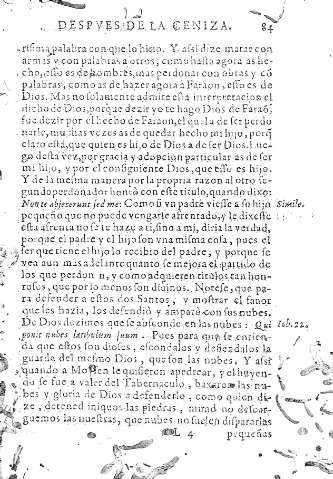 DESPVES DE LA CENIZA. 84
rissima palabra con que lo hizo. Y assi dize, matar con
armas y con palabras a otros, como hasta agora as he-
cho, esso es de hombres, mas perdonar con obras y cõ
palabras, como as de hazer agora a Faraon, esso es de
Dios. Mas no solamente admite esta interpretacion el
dicho de Dios, porque dezir yo te hago Dios de Faraõ,
fue dezir por el hecho de Faraon, el qual a de ser perdo
narle, muchas vezes as de quedar hecho mi hijo, porq̃
claro està, que quien es hijo de Dios a de ser Dios. Lue-
go desta vez, por gracia y adopcion particular as de ser
mi hijo, y por el consiguiente Dios, que esso es hijo.
Y de la mesma manera por la propria razon al otro se
gundo perdonador honrò con este titulo, quando dixo:
Non te abjecerunt sed me: Como si vn padre viesse a su hijo
Simile.
pequeño que no puede vengarse afrentado, y le dixesse
esta afrenta no se te haze a ti, sino a mi, diria la verdad,
porque el padre y el hijo son vna misma cosa, pues el
ser que tiene el hijo lo recibio del padre, y porque se
vea aun mas adelante quanto se mejora el partido de
los que perdonan, y como adquieren titulos tan hon-
rosos, que por lo menos son diuinos. Notese, que pa-
ra defender a estos dos Santos, y mostrar el fauor
que les hazia, los defendiò y amparò con sus nubes.
De Dios dezimos que se absconde en las nubes: Qui
Iob. 22.
ponit nubes latibulum suum. Pues para que se entien-
da que estos son dioses, escondalos y defiendalos la
guarda del mesmo Dios, que son las nubes. Y assi
quando a Moysen le quisieron apedrear, y el huyen-
do se fue a valer del Tabernaculo, baxaron las nu-
bes y gloria de Dios a defenderlo, como quien di-
ze, detened iniquos las piedras, mirad no descar-
guemos las nuestras, que nubes no suelen dispararlas
L 4 pequeñas